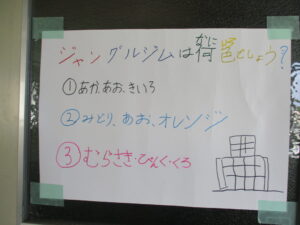 ジャングルジムは何色でしょう?
①あか、あお、きいろ
②みどり、あお、オレンジ
③むらさき・ぴんく・くろ